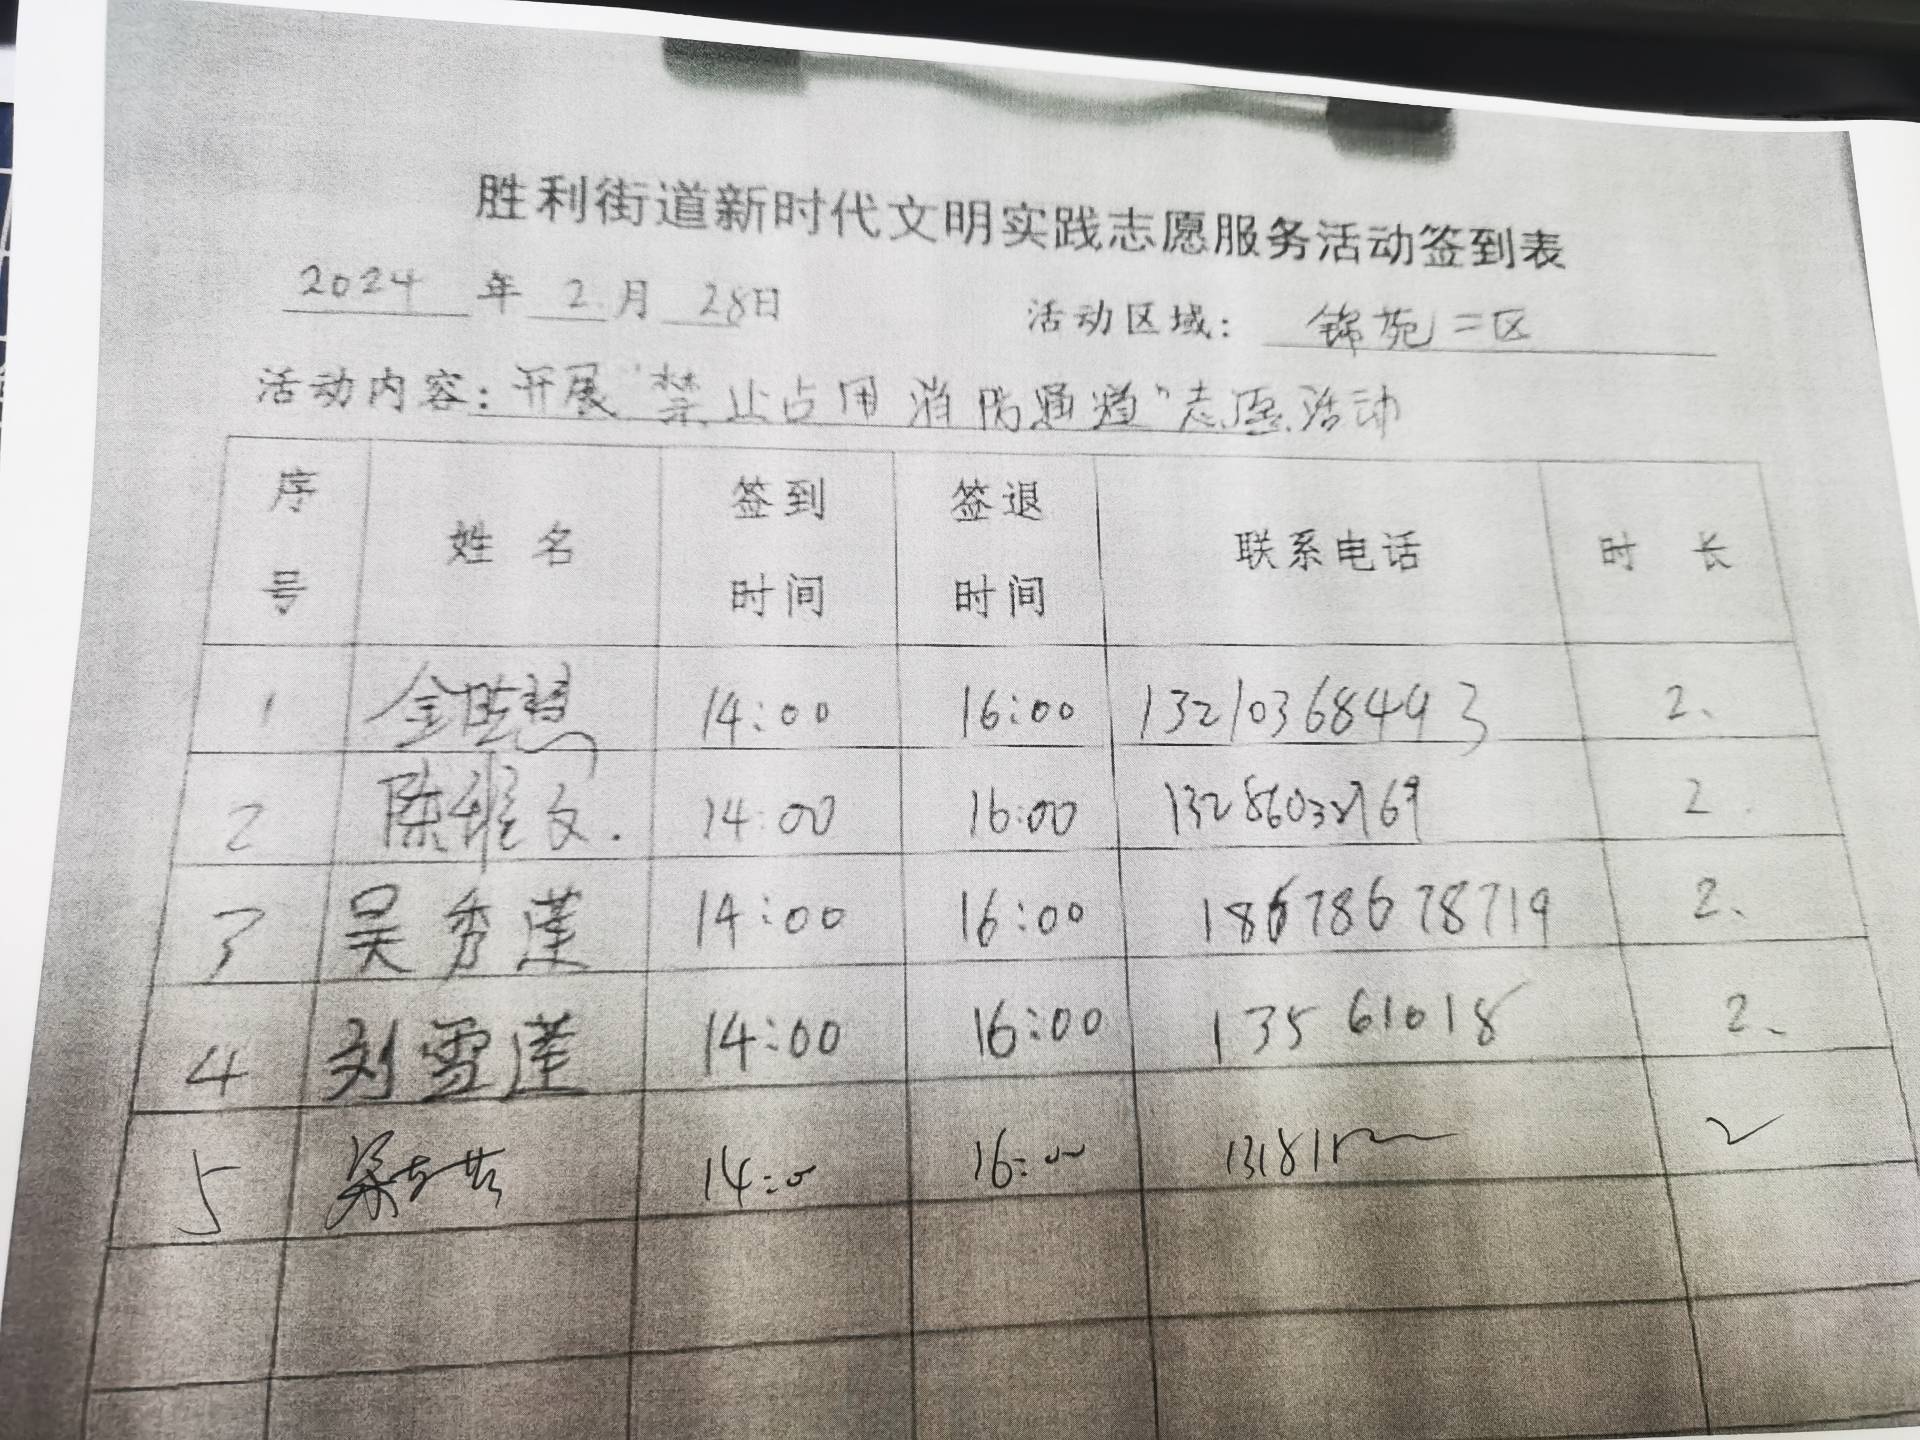 胜利街道新时代文明实践志愿服务活动签到表
2024 年 2 月 28日 活动区域: 锦苑二区
活动内容: 开展"禁止占用消防通道"志愿活动
序号 姓名 签到时间 签退时间 联系电话 时长
1 金 慧 14:00 16:00 13210368493 2、
2 陈维文. 14:00 16:00 2
3 吴秀莲 14:00 16:00 18678678719 2、
4 刘雪莲 14:00 16:00 135 61018 2、
5 14:00 16:00 2